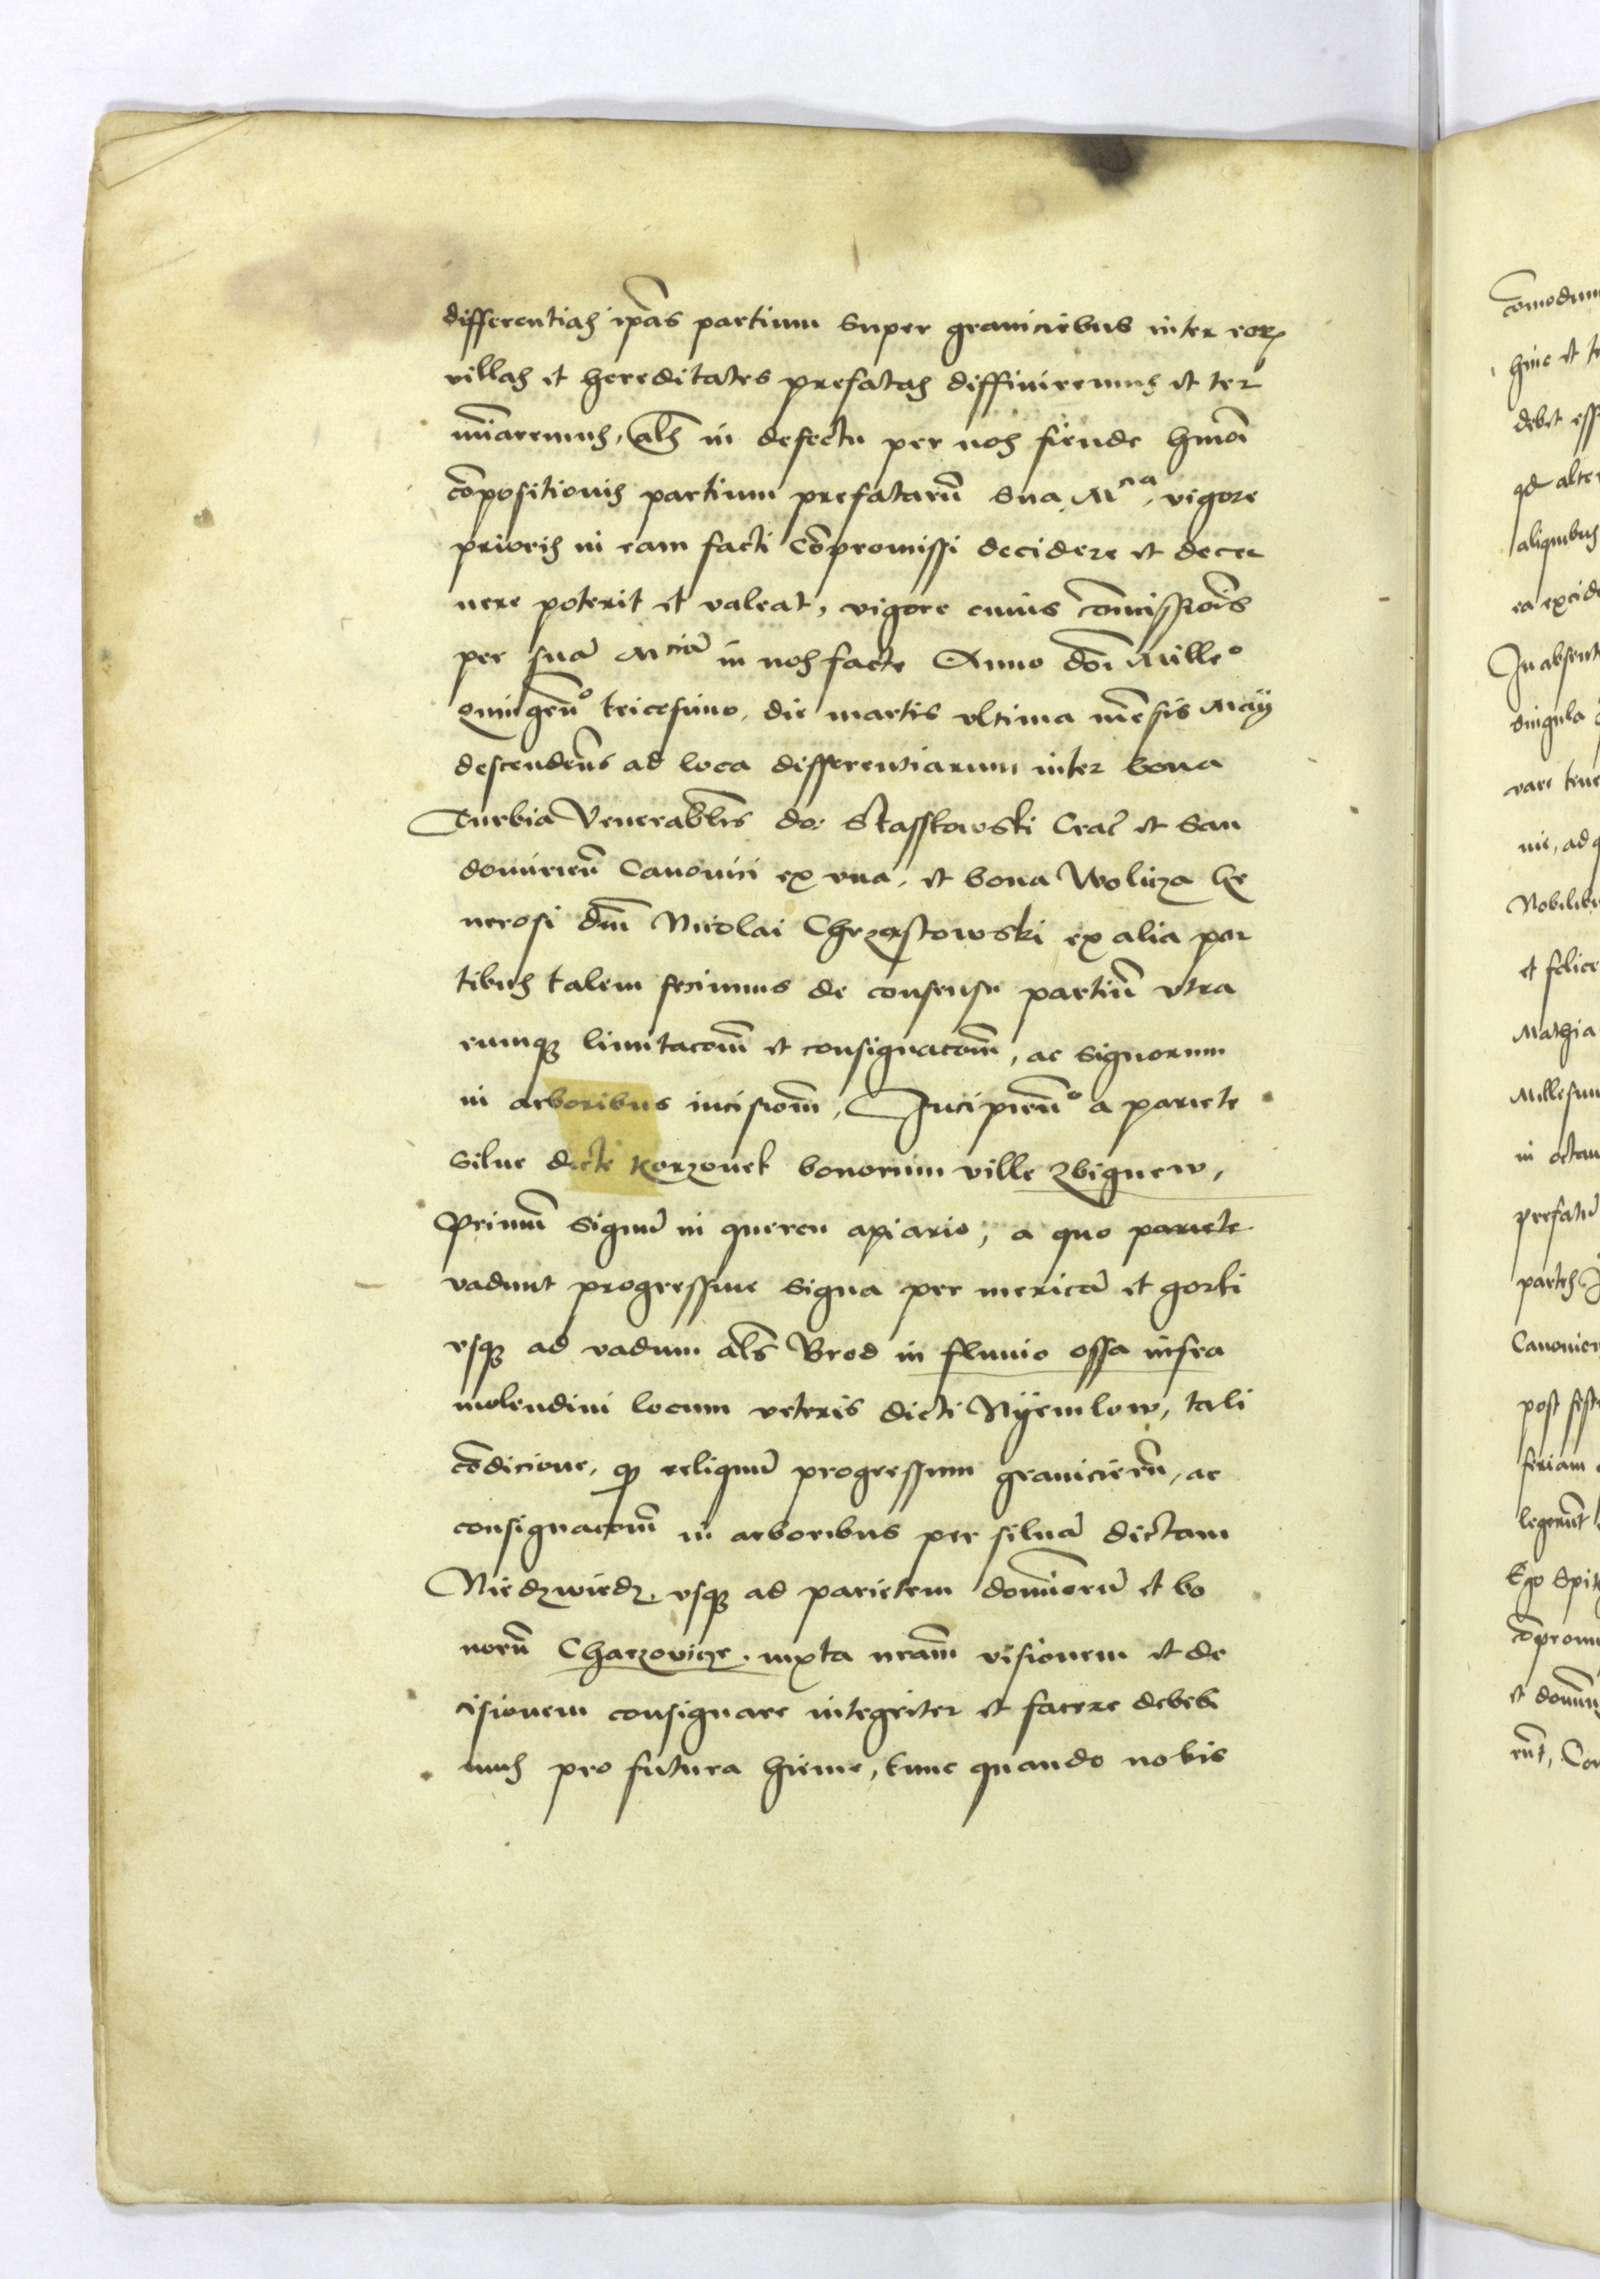 differentias ip̄as partium super graniciebus inter eoꝝ
villas et hereditates prefatas diffiniremus et ter
mīaremus, al̄s in defectu per nos fiende hmōi
cōpositionis partium prefatarū sua Mcia, vigore
prioris in eam facti cōpromissi decidere et decer
nere poterit et valeat, vigore cuius cōmissiōis
per suā Mciā in nos facte Anno dōi Milleº
quingen̄º tricesimo, die martis vltima mēsis Maij
descenden̄s ad loca differentiarum inter bona
Turbia Venerabl̄is do: Stasskowski Crac̄ et San
domirien̄ Canonici ex vna, et bona Wolicza Ge
nerosi dn̄i Nicolai Chrząstowski ex alia par
tibus talem fecimus de consensu partiū vtra
rumqꝫ limitacōm̄ et consignacōm̄, ac signorum
in arboribus incisiom̄, Incipien̄º a pariete
silue dicte Korzonek bonorum ville Zbignew,
Primū signū in quercu apiario, a quo pariete
vadunt progressiue signa per mericā et gorki
vsqꝫ ad vadum al̄s Brod in fluuio ossa infra
molendini locum veteris dicti Nyemlow, tali
cōdicione, qꝫ reliquū progressum granicierū, ac
consignacōm̄ in arboribus per siluā dictam
Niedzwiedz, vsqꝫ ad parietem dominorū et bo
norū Charzovicze, iuxta nr̄am visionem et de
cisionem consignare integriter et facere debebi
mus pro futura hieme, tunc quando nobis
cōmodum
hinc et te
debet ess
qd alter
aliquibus
ea excide
In absent
singula
vare tene
nie, ad q
Nobilib
et felice
Mathia
Millesim
in octau
prefatū
partes
Canonicu
post fest
feriam
legerūt
Ego Spit
cōprom
et domin
rūt, Con